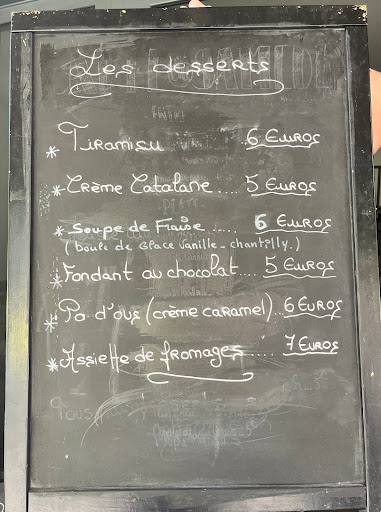 Les desserts
* Tiramisu ..6 Euros
* Crème Catalane .... 5 Euros
* Soupe de Fraise ..... 6 Euros
(boule de glace vanille - chantilly.)
* Fondant au chocolat.... 5 Euros
* Pa d'ous (crème caramel)..6 Euros
* Assiette de fromages..... 7 Euros